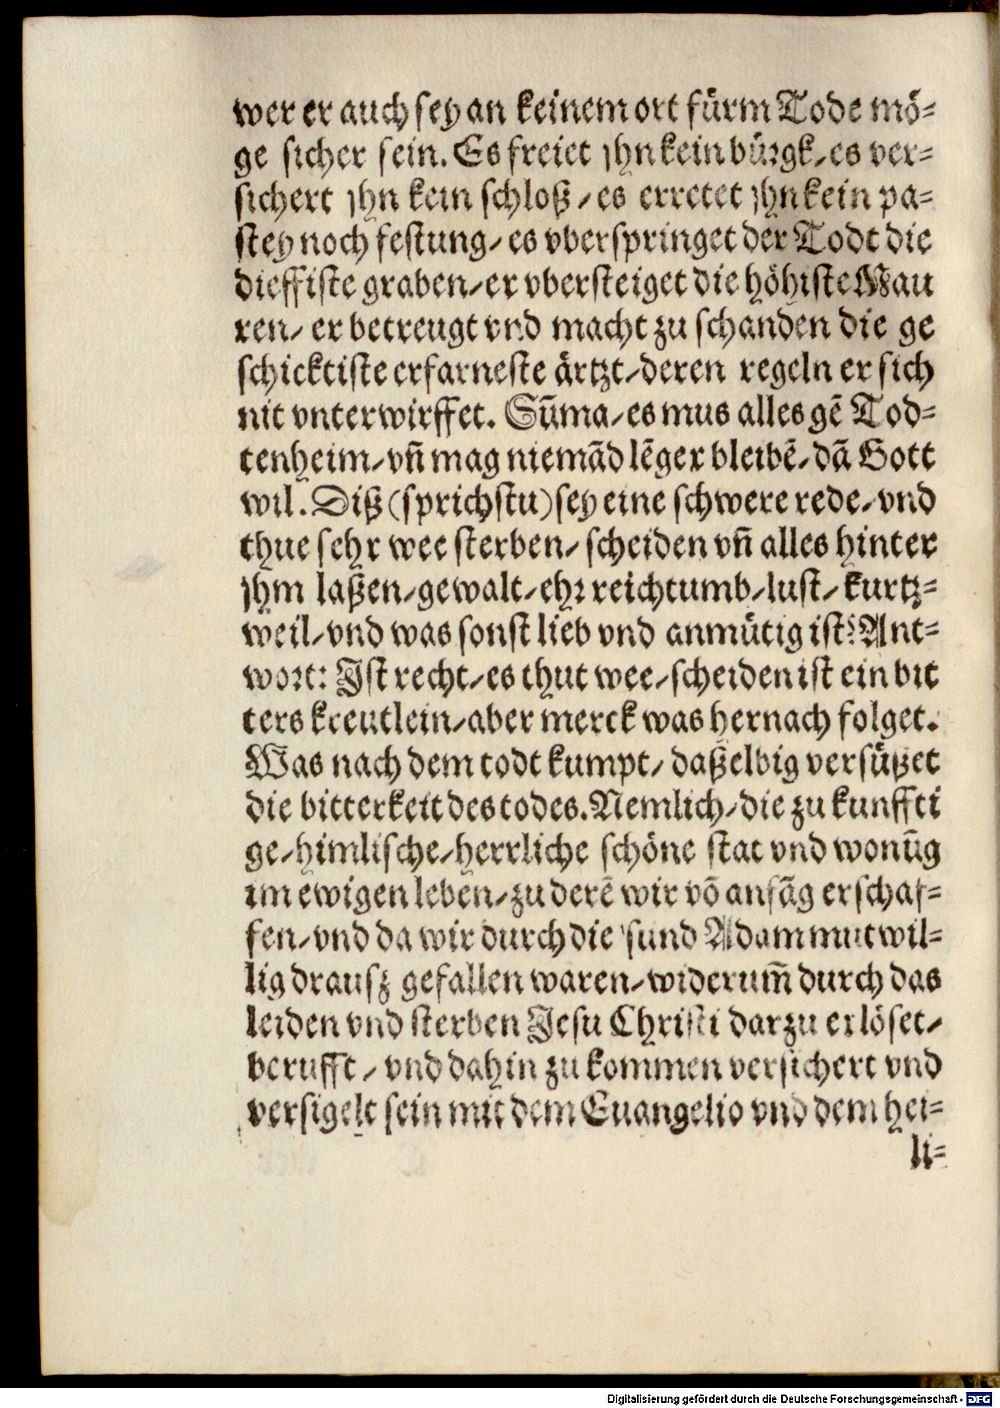 wer er auch sey an keinem ort fürm Tode mö⸗
ge sicher sein. Es freiet jhn kein bürgk/ es ver⸗
sichert jhn kein schloß/ es erretet jhn kein pa⸗
stey noch festung/ es vberspringet der Todt die
dieffiste graben/ er vbersteiget die höhiste Mau
ren/ er betreugt vnd macht zu schanden die ge
schicktiste erfarneste ärtzt/ deren regeln er sich
nit vnterwirffet. Sūma/ es mus alles gē Tod⸗
tenheim/ vn̄ mag niemād lēger bleibē/ dā Gott
wil. Diß (sprichstu) sey eine schwere rede/ vnd
thue sehr wee sterben/ scheiden vn̄ alles hinter
jhm laßen/ gewalt/ ehr reichtumb/ lust/ kurtz⸗
weil/ vnd was sonst lieb vnd anmütig ist? Ant⸗
wort: Ist recht/ es thut wee/ scheiden ist ein bit
ters kreutlein/ aber merck was hernach folget.
Was nach dem todt kumpt/ daßelbig versüßet
die bitterkeit des todes. Nemlich/ die zu kunffti
ge/ himlische/ herrliche schöne stat vnd wonūg
im ewigen leben/ zu derē wir vō anfāg erschaf⸗
fen/ vnd da wir durch die sund Adam mutwil⸗
lig drausz gefallen waren/ widerum̄ durch das
leiden vnd sterben Jesu Christi darzu erlöset/
berufft/ vnd dahin zu kommen versichert vnd
versigelt sein mit dem Euangelio vnd dem hei⸗
li⸗
Digitalisierung gefördert durch die Deutsche Forschungsgemeinschaft - DFG